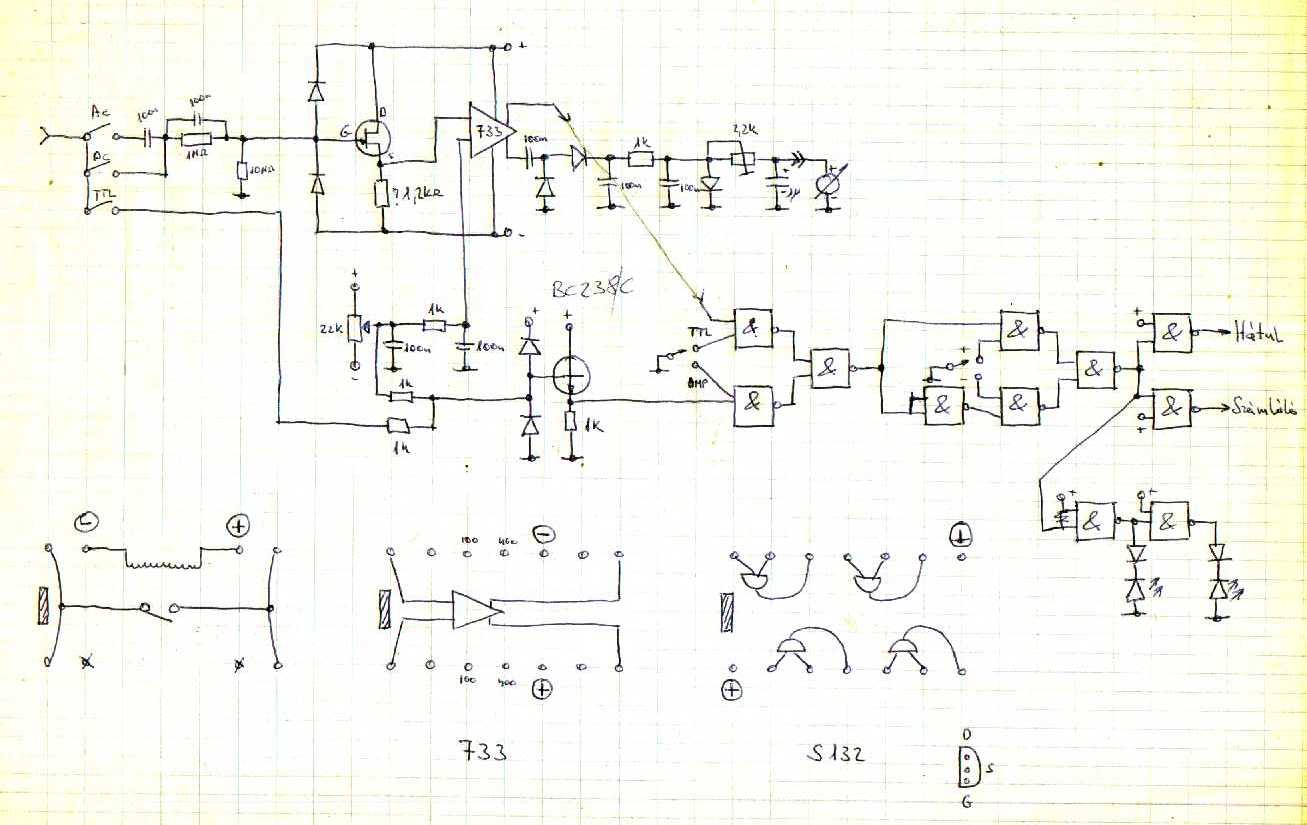 +
100n
AC
100n
D
G
733
1MΩ
S
100n
2,2k
1k
DC
10MΩ
? 1,2kΩ
+
100n
100n
1µ
+
-
TTL
-
BC238C
+
1k
+
+
22k
100n
100n
TTL
&
&
+
&
Hátul
-
&
+
-
&
1k
AMP
&
&
&
&
Számláló
1k
1k
+
+
+
&
&
-
+
100
400
-
⊥
100
400
+
+
733
S132
D
S
G